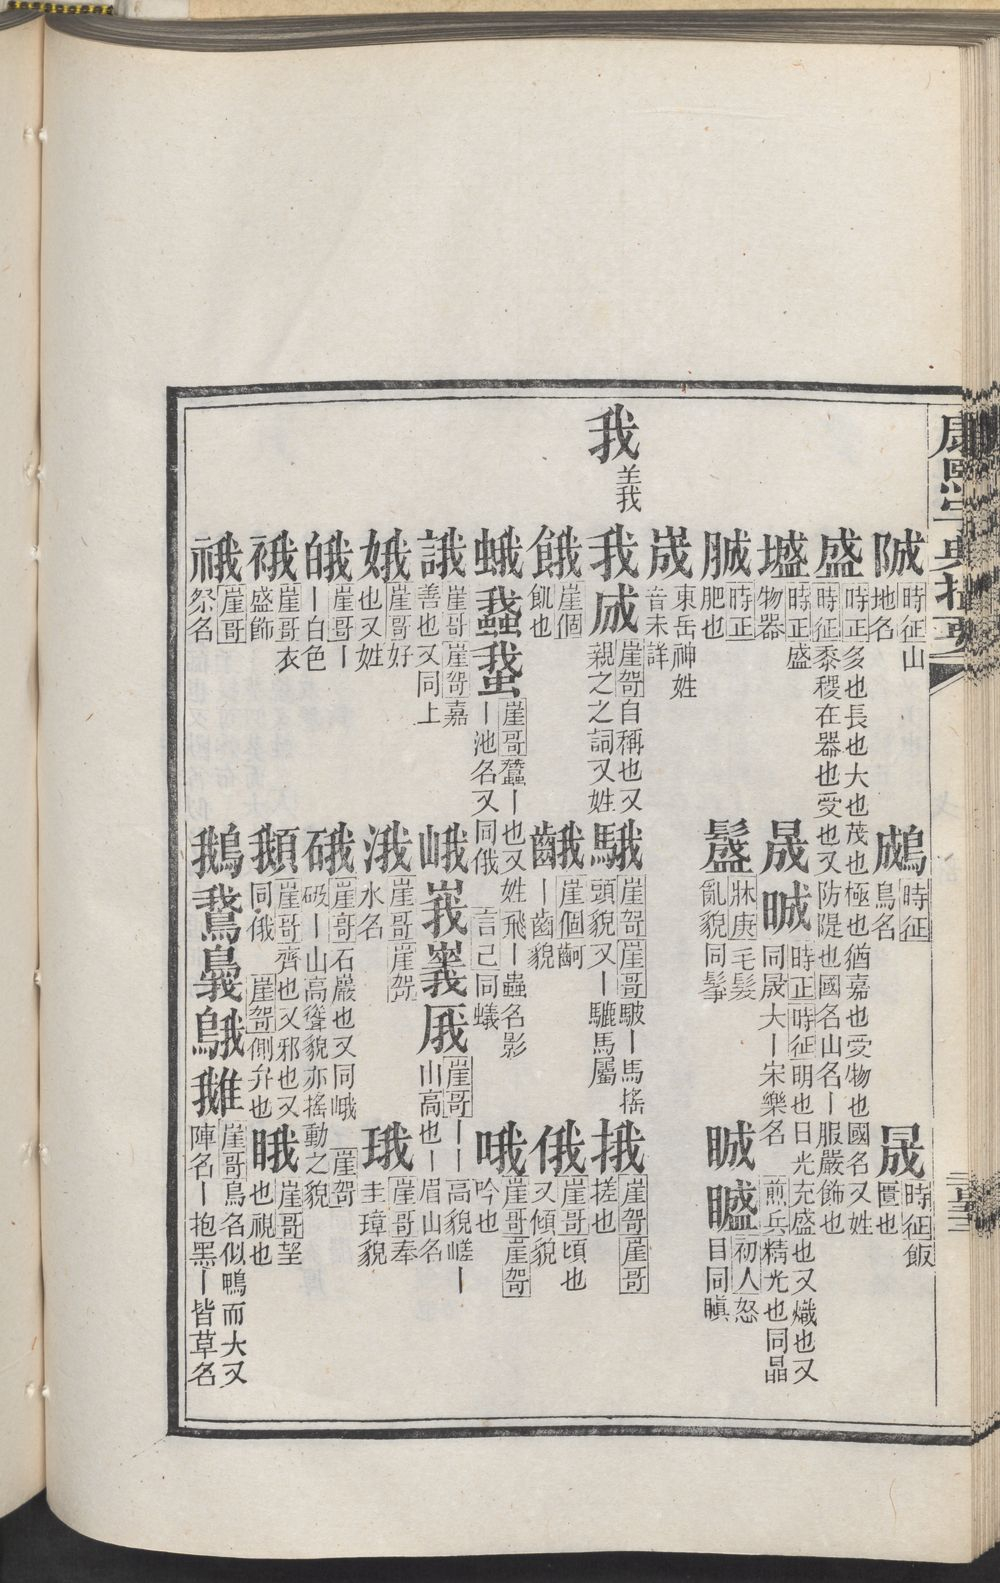 康熙字典撮要
䧕 時征山地名
鳾 時征鳥名
晟 時征飯匱也
盛 時正多也長也大也茂也極也猶嘉也愛物也國名又姓時征黍稷在器也受也又防隄也國名山名丨服嚴飾也
墭 時正盛物器
晟晠 時正時征明也日光充盛也又熾也又同晟大丨宋樂名 煎兵精光也同晶
䏈 時正肥也
鬙 牀庚毛髮亂貌同髼
䁎 初人怒目同瞋
嵗 東岳神姓音未詳
我 羛
我 崖哿自稱也又親之之詞又姓
騀 崖哿崖哥駊丨馬搖頭貌又丨驣馬屬
捰 崖哿崖哥搓也
餓 崖個飢也
䶗 崖個齖丨齒貌
俄 崖哥頃也又傾貌
蛾 崖哥蠶丨也又姓飛丨蟲名影丨池名又同俄 言己同蟻
哦 崖哥崖哿吟也
誐 崖哥崖哿嘉善也又同上
峨峩 崖哥丨丨高貌嵯丨山高也丨眉山名
娥 崖哥好也又姓
涐 崖哥崖哿水名
珴 崖哥奉圭璋貌
皒 崖哥丨丨白色
硪 崖哥石巖也又同峨 崖哿砐丨山高聳貌亦搖動之貌
䄉 崖哥衣盛飾
䫬 崖哥齊也又邪也又同俄 崖哿側弁也
睋 崖哥望也視也
䄉 崖哥祭名
鵝鵞䳗䳘 崖哥鳥名似鴨而大又陣名丨抱黑丨皆草名